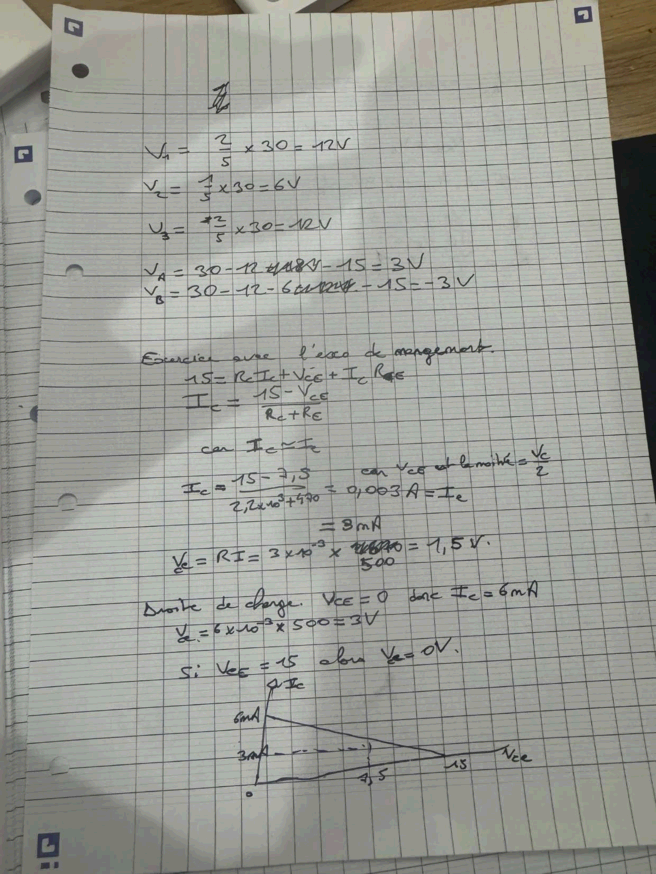 V₁ = 2/5 × 30 = 12V
V₂ = 1/5 × 30 = 6V
V₃ = 2/5 × 30 = 12V
V_A = 30 - 12 - 15 = 3V
V_B = 30 - 12 - 6 - 15 = -3V
Exercice avec l'exo de
15 = RcIc + VCE + Ic RE
Ic = (15 - VCE)/(Rc + RE)
car Ic ≃ Ie
Ic = (15 - 7,5)/(2,2×10³ + 470) = 0,003 A = Ie
car VCE est la moitié = Vc/2
= 3mA
Ve = RI = 3×10⁻³ × 500 = 1,5V.
Droite de charge. VCE = 0 donc Ic = 6mA
Ve = 6×10⁻³ × 500 = 3V
Si VCE = 15 alors Ve = 0V.
Ic
6mA
3mA
0
7,5
15
Vce